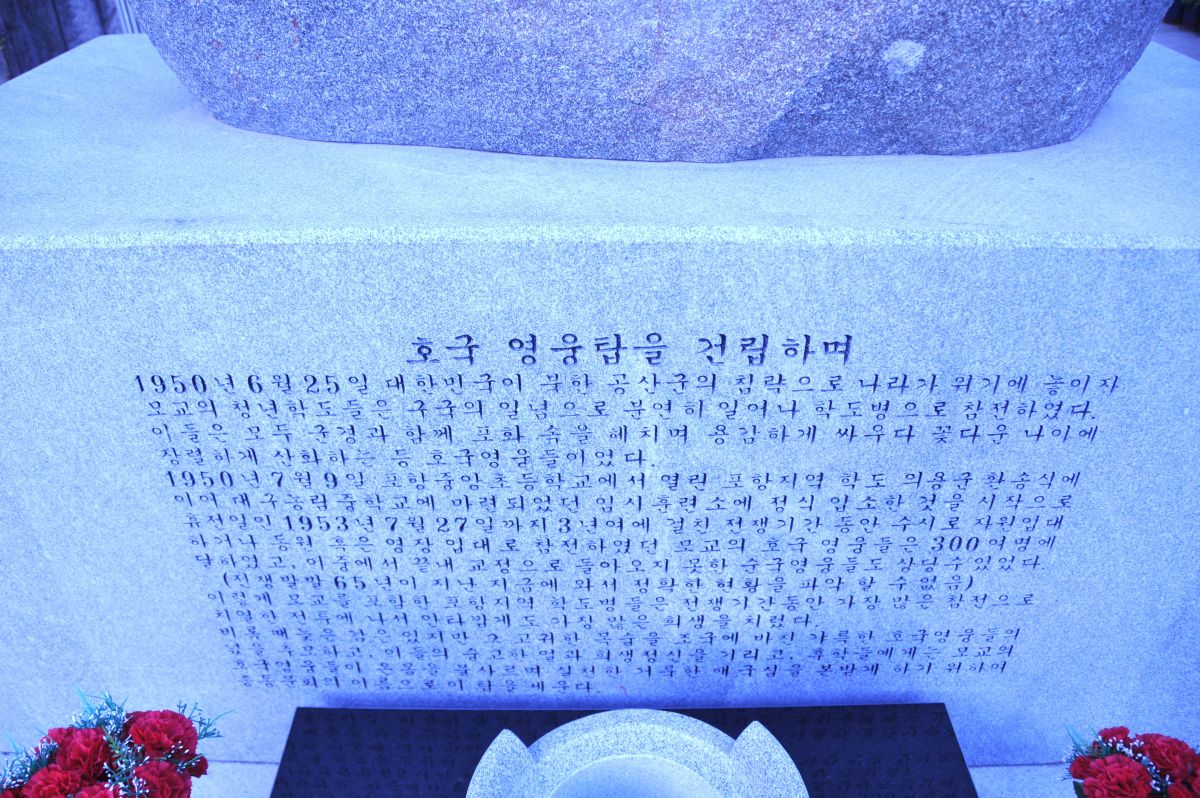 호국 영웅탑을 건립하며
1950년 6월 25일 대한민국이 북한 공산군의 침략으로 나라가 위기에 놓이자
모교의 청년학도들은 구국의 일념으로 분연히 일어나 학도병으로 참전하였다.
이들은 모두 군경과 함께 포화 속을 헤치며 용감하게 싸우다 꽃다운 나이에
장렬하게 산화하는 등 호국영웅들이었다.
1950년 7월 9일 포항중앙초등학교에서 열린 포항지역 학도 의용군 환송식에
이어 대구농림중학교에 마련되었던 임시훈련소에 정식 입소한 것을 시작으로
휴전일인 1953년 7월 27일까지 3년여에 걸친 전쟁기간 동안 수시로 자원입대
하거나 동원 혹은 영장입대로 참전하였던 모교의 호국 영웅들은 300여명에
달하였고, 이중에서 끝내 교정으로 돌아오지 못한 순국영웅들도 상당수있었다.
(전쟁발발 65년이 지난 지금에 와서 정확한 현황을 파악 할 수 없음)
이렇게 모교를 포함한 포항지역 학도병들은 전쟁기간동안 가장 많은 참전으로
치열한 전투에 나서 안타깝게도 가장 많은 희생을 치렀다.
비록 때늦은 감은 있지만 그 고귀한 목숨을 조국에 바친 갸륵한 호국영웅들의
넋을 추모하고, 이들의 숭고한 얼과 희생정신을 기리고, 후학들에게는 모교의
호국영웅들이 온몸을 불사르며 실천한 거룩한 애국심을 본받게 하기 위하여
총동문회의 이름으로 이 탑을 세운다.